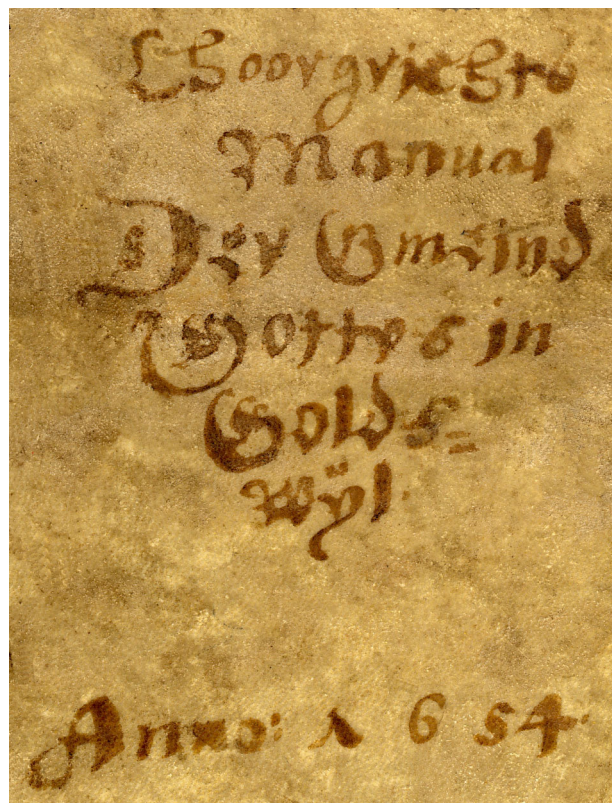 Choorgrichts
Manual
Der Gmeind
Gottes in
Golds=
wÿl.
Anno: 1654.